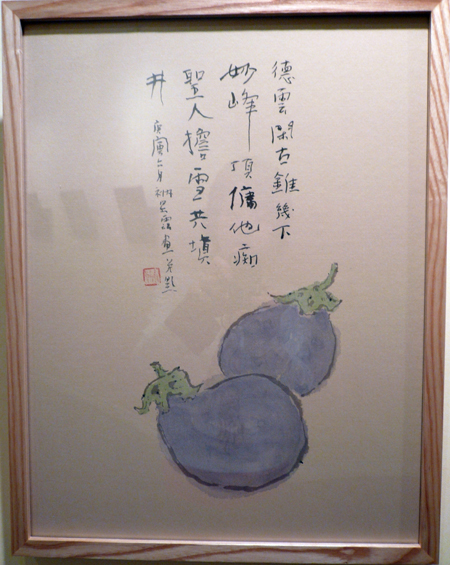 德雲閑古錐幾下
妙峰頂傭他痴
聖人擔雪共填
井
庚寅六月 畫并題